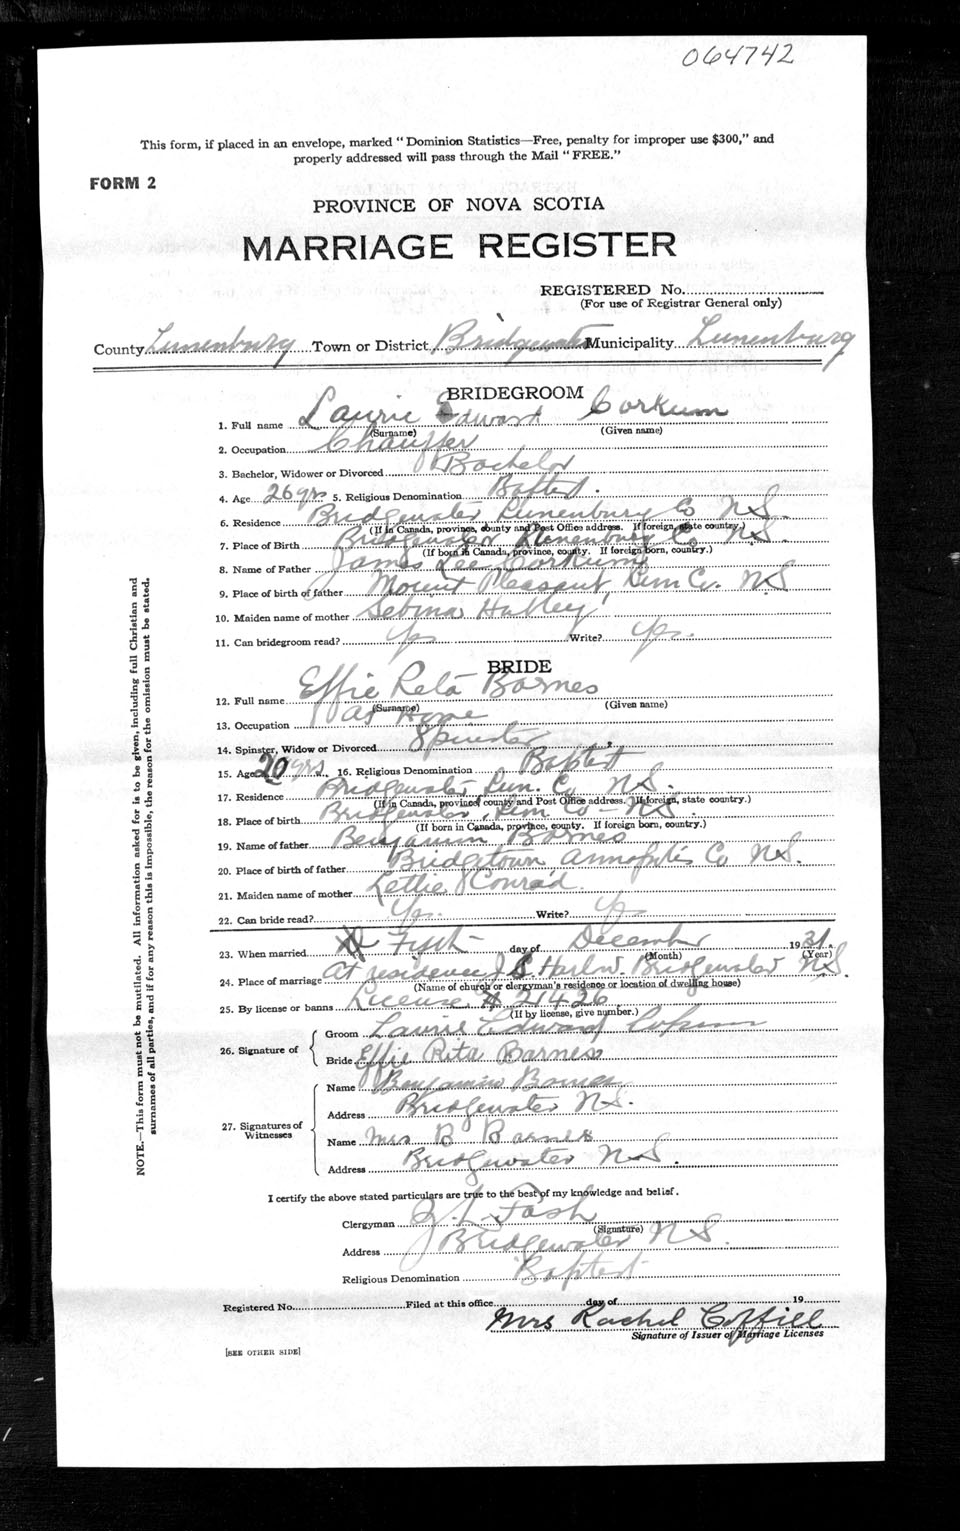 064742
This form, if placed in an envelope, marked "Dominion Statistics—Free, penalty for improper use $300," and
properly addressed will pass through the Mail "FREE."
FORM 2
PROVINCE OF NOVA SCOTIA
MARRIAGE REGISTER
REGISTERED No.
(For use of Registrar General only)
County Lunenburg Town or District Bridgewater Municipality Lunenburg
BRIDEGROOM
1. Full name Laurie Edward Corkum
(Surname) (Given name)
2. Occupation Chauffer
3. Bachelor, Widower or Divorced Bachelor
4. Age 26 yrs 5. Religious Denomination Baptist.
6. Residence Bridgewater Lunenburg Co N.S.
(If in Canada, province, county and Post Office address. If foreign, state country.)
7. Place of Birth Bridgewater Lunenburg Co N.S.
(If born in Canada, province, county. If foreign born, country.)
8. Name of Father James Lee Corkum
9. Place of birth of father Mount Pleasent, Lun Co. N.S
10. Maiden name of mother Hatley
11. Can bridegroom read? Yes Write? Yes.
BRIDE
12. Full name Effie Reta Barnes
(Surname) (Given name)
13. Occupation At Home
14. Spinster, Widow or Divorced Spinster
15. Age 20 yrs. 16. Religious Denomination Baptist
17. Residence Bridgewater Lun. Co N.S.
(If in Canada, province, county and Post Office address. If foreign, state country.)
18. Place of birth Bridgewater, Lun Co N.S.
(If born in Canada, province, county. If foreign born, country.)
19. Name of father Benjamin Barnes
20. Place of birth of father Bridgetown Annapolis Co N.S.
21. Maiden name of mother Lettie Conrad
22. Can bride read? Yes. Write? Yes
23. When married First day of December 1931.
(Month) (Year)
24. Place of marriage At residence J S Harlow. Bridgewater N.S.
(Name of church or clergyman's residence or location of dwelling house)
25. By license or banns License # 21426
(If by license, give number.)
26. Signature of
Groom Laurie Edward Corkum
Bride Effie Rita Barnes
27. Signatures of Witnesses
Name Benjamin Barnes
Address Bridgewater N.S.
Name Mrs B Barnes
Address Bridgewater N.S.
I certify the above stated particulars are true to the best of my knowledge and belief.
Clergyman J. L. Fash
(Signature)
Address Bridgewater N.S.
Religious Denomination Baptist
Registered No. Filed at this office day of 19
Mrs Rachel Coffill
Signature of Issuer of Marriage Licenses
[SEE OTHER SIDE]
NOTE.—This form must not be mutilated. All information asked for is to be given, including full Christian and
surnames of all parties, and if for any reason this is impossible, the reason for the omission must be stated.